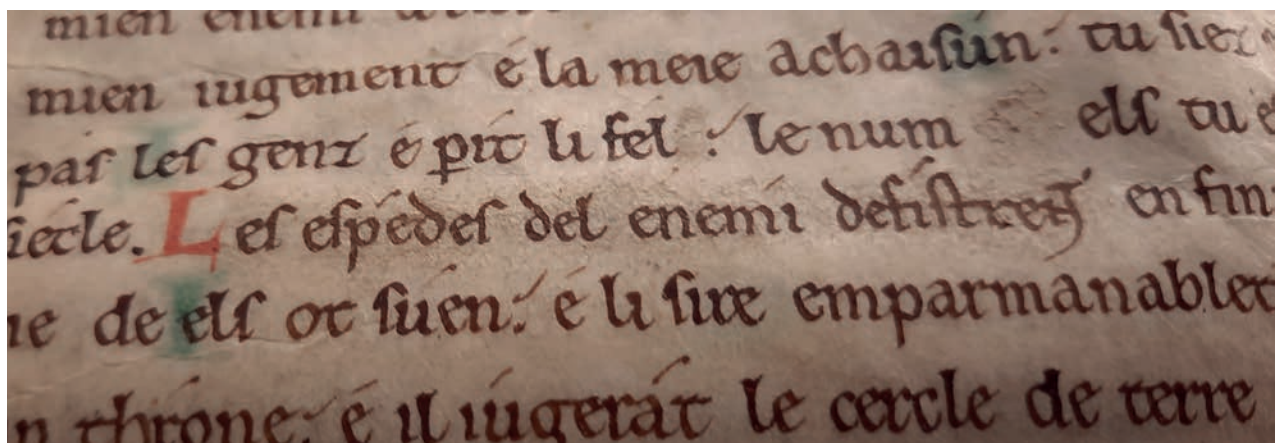 mien enemi
mien iugement é la meie achaisun: tu siez
pas les genz é perit li fel: le num els tu
siecle. Les espédes del enemi defistrent en fin:
de els ot suen: é li sire emparmanablet
throne: é il iúgerát le cercle de terre